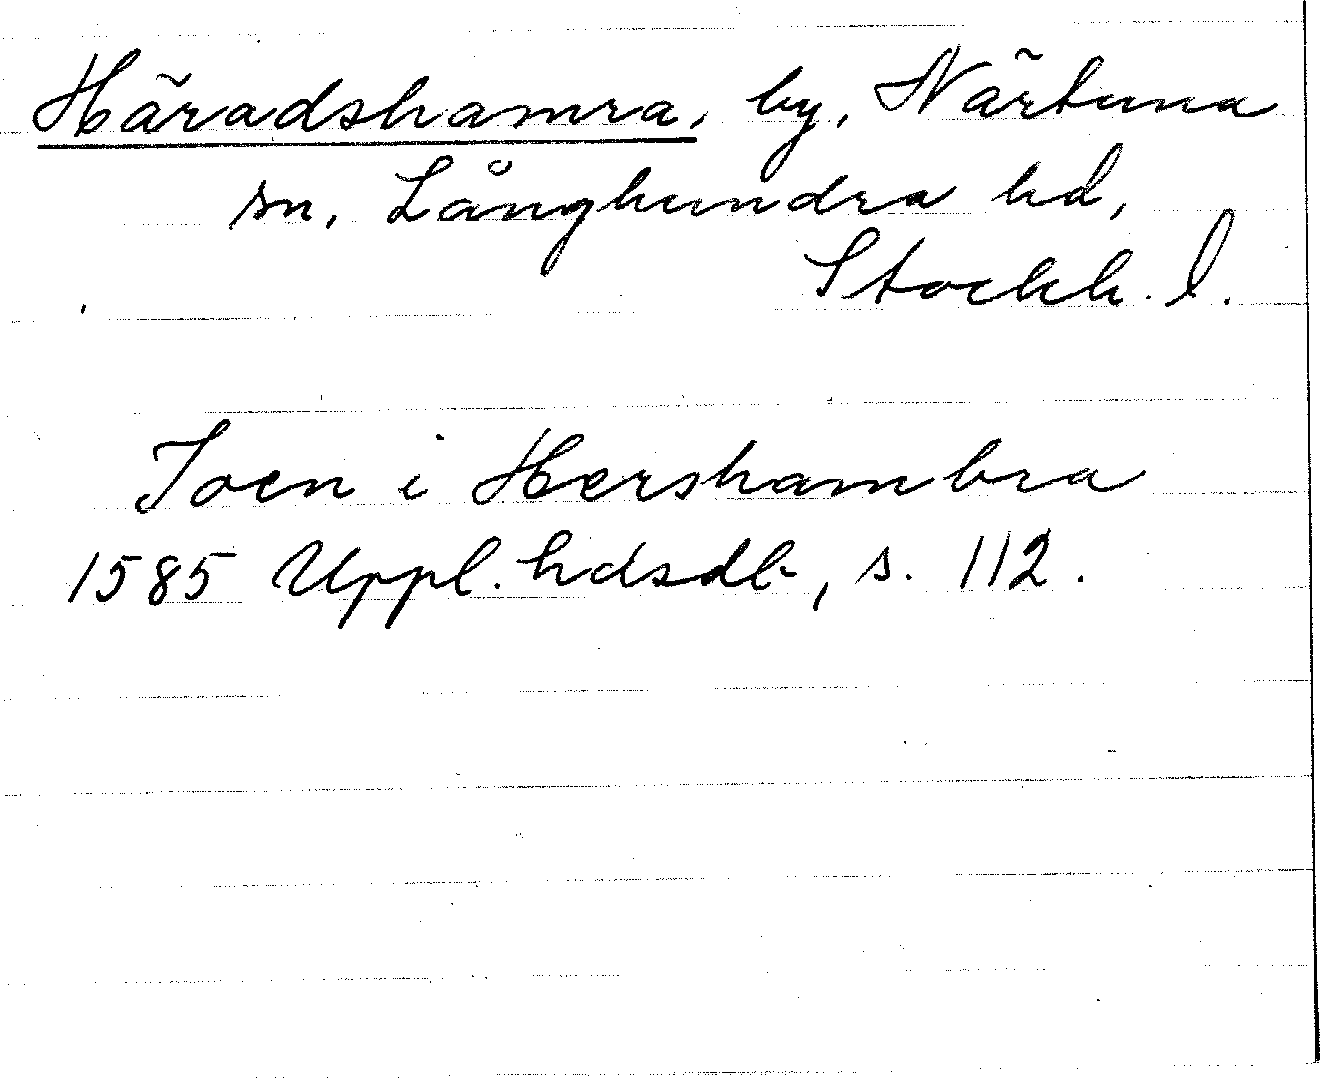 Häradshamra, by, Närtuna
sn, Långhundra hd,
Stockh. l.
Joen i Hershambra
1585 Uppl. hdsdb., s. 112.